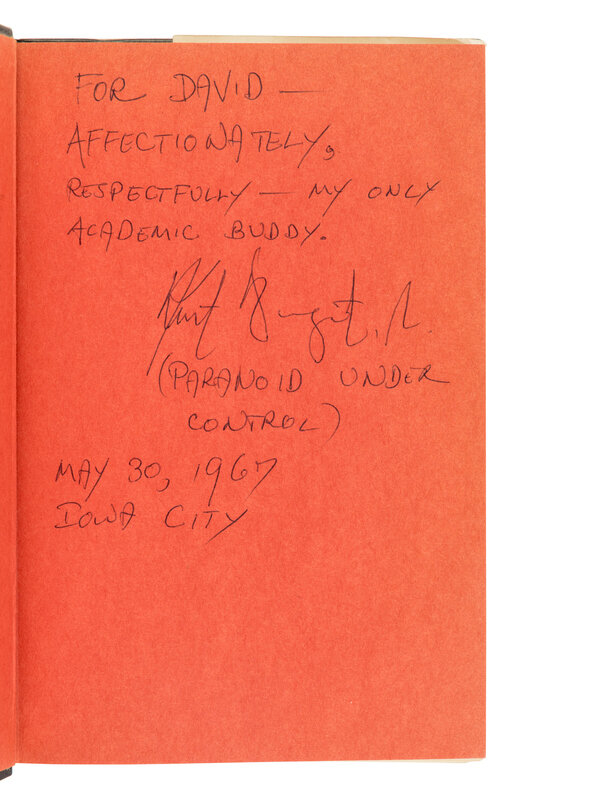 FOR DAVID —
AFFECTIONATELY,
RESPECTFULLY — MY ONLY
ACADEMIC BUDDY.
Kurt Vonnegut, Jr.
(PARANOID UNDER
CONTROL)
MAY 30, 1967
IOWA CITY